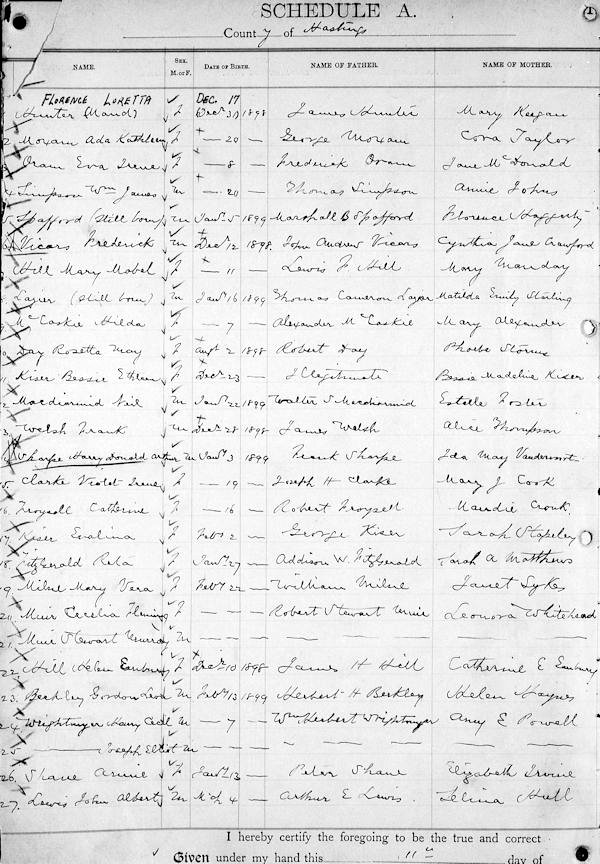 SCHEDULE A.
County of Hastings
NAME. SEX. M. or F. DATE OF BIRTH. NAME OF FATHER. NAME OF MOTHER.
FLORENCE LORETTA DEC. 17
Hunter (Maud) f Decr 30 1898 James Hunter Mary Keegan
2. Moxam Ada Kathleen f — 20 — George Moxam Cora Taylor
Oram Eva Irene f — 8 — Frederick Oram Jane McDonald
4. Simpson Wm James m — 20 — Thomas Simpson Annie Johns
5. Spafford (still born) m Janr 5 1899 Marshall B Spafford Florence Haggerty
6. Vicars Frederick m Decr 12 1898. John Andrew Vicars Cynthia Jane Crawford
Hill Mary Mabel f — 11 — Lewis F Hill Mary Munday
Lazier (still born) m Janr 16 1899 Thomas Cameron Lazier Matilda Emily Starling
McCaskie Hilda f — 7 — Alexander McCaskie Mary Alexander
Day Rosetta May f Augt 2 1898 Robert Day Phoebe Storms
Kiser Bessie f Decr 23 — Illegitimate Bessie Madeline Kiser
Macdiarmid Neil m Janr 22 1899 Walter S Macdiarmid Estelle Foster
3. Welsh Frank m Decr 28 1898 James Welsh Alice Thompson
Sharpe Harry Donald Arthur m Janr 3 1899 Frank Sharpe Ida May Vandervoort
15. Clarke Violet Irene f — 19 — Joseph H Clarke Mary J Cook
16. Froysell Catherine f — 16 — Robert Froysell Maudie Cronk.
17. Kiser Evalina f Feby 2 — George Kiser Sarah Stapeley
18. Fitzgerald Reta f Janr 27 — Addison W. Fitzgerald Sarah A Matthews
19. Milne Mary Vera f Feby 22 — William Milne Janet Sykes
20. Muir Cecelia Fleming f — — — Robert Stewart Muir Leonora Whitehead
21. Muir Stewart Murray m — — — — — — — — —
22. Hill Helen Embury f Decr 10 1898 James H Hill Catherine E Embury
23. Berkley Gordon m Feby 13 1899 Herbert H Berkley Helen Haynes
24. Wrightmyer Harry Cecil m — 7 — Wm Herbert Wrightmyer Amy E Powell
25 — Joseph Elliot m — — — — — — — — —
26. Shane Annie f Janr 13 — Peter Shane Elizabeth Irvine
27. Lewis John Albert m Mch 4 — Arthur E Lewis. Zelina Hull
I hereby certify the foregoing to be the true and correct
Given under my hand this 11th day of